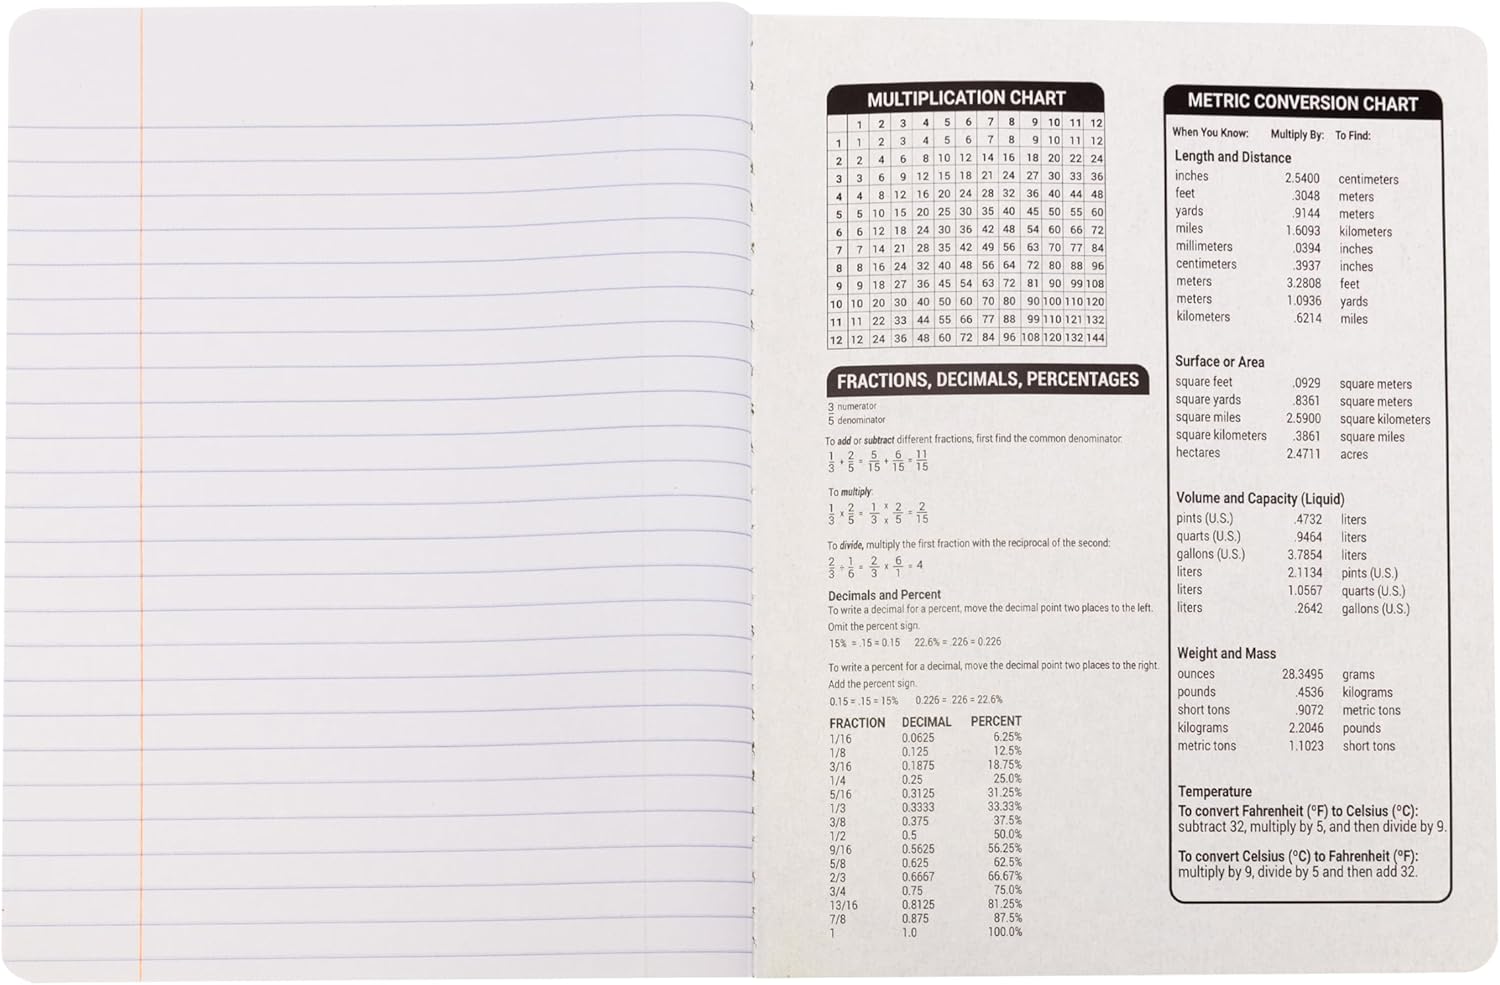 MULTIPLICATION CHART
1 2 3 4 5 6 7 8 9 10 11 12
1 1 2 3 4 5 6 7 8 9 10 11 12
2 2 4 6 8 10 12 14 16 18 20 22 24
3 3 6 9 12 15 18 21 24 27 30 33 36
4 4 8 12 16 20 24 28 32 36 40 44 48
5 5 10 15 20 25 30 35 40 45 50 55 60
6 6 12 18 24 30 36 42 48 54 60 66 72
7 7 14 21 28 35 42 49 56 63 70 77 84
8 8 16 24 32 40 48 56 64 72 80 88 96
9 9 18 27 36 45 54 63 72 81 90 99 108
10 10 20 30 40 50 60 70 80 90 100 110 120
11 11 22 33 44 55 66 77 88 99 110 121 132
12 12 24 36 48 60 72 84 96 108 120 132 144
FRACTIONS, DECIMALS, PERCENTAGES
3 numerator
5 denominator
To add or subtract different fractions, first find the common denominator.
1/3 + 2/5 = 5/15 + 6/15 = 11/15
To multiply:
1/3 x 2/5 = 1 x 2/3 x 5 = 2/15
To divide, multiply the first fraction with the reciprocal of the second:
2/3 ÷ 1/6 = 2/3 x 6/1 = 4
Decimals and Percent
To write a decimal for a percent, move the decimal point two places to the left.
Omit the percent sign.
15% = .15 = 0.15 22.6% = .226 = 0.226
To write a percent for a decimal, move the decimal point two places to the right.
Add the percent sign.
0.15 = .15 = 15% 0.226 = .226 = 22.6%
FRACTION DECIMAL PERCENT
1/16 0.0625 6.25%
1/8 0.125 12.5%
3/16 0.1875 18.75%
1/4 0.25 25.0%
5/16 0.3125 31.25%
1/3 0.3333 33.33%
3/8 0.375 37.5%
1/2 0.5 50.0%
9/16 0.5625 56.25%
5/8 0.625 62.5%
2/3 0.6667 66.67%
3/4 0.75 75.0%
13/16 0.8125 81.25%
7/8 0.875 87.5%
1 1.0 100.0%
METRIC CONVERSION CHART
When You Know: Multiply By: To Find:
Length and Distance
inches 2.5400 centimeters
feet .3048 meters
yards .9144 meters
miles 1.6093 kilometers
millimeters .0394 inches
centimeters .3937 inches
meters 3.2808 feet
meters 1.0936 yards
kilometers .6214 miles
Surface or Area
square feet .0929 square meters
square yards .8361 square meters
square miles 2.5900 square kilometers
square kilometers .3861 square miles
hectares 2.4711 acres
Volume and Capacity (Liquid)
pints (U.S.) .4732 liters
quarts (U.S.) .9464 liters
gallons (U.S.) 3.7854 liters
liters 2.1134 pints (U.S.)
liters 1.0567 quarts (U.S.)
liters .2642 gallons (U.S.)
Weight and Mass
ounces 28.3495 grams
pounds .4536 kilograms
short tons .9072 metric tons
kilograms 2.2046 pounds
metric tons 1.1023 short tons
Temperature
To convert Fahrenheit (ºF) to Celsius (ºC):
subtract 32, multiply by 5, and then divide by 9.
To convert Celsius (ºC) to Fahrenheit (ºF):
multiply by 9, divide by 5 and then add 32.